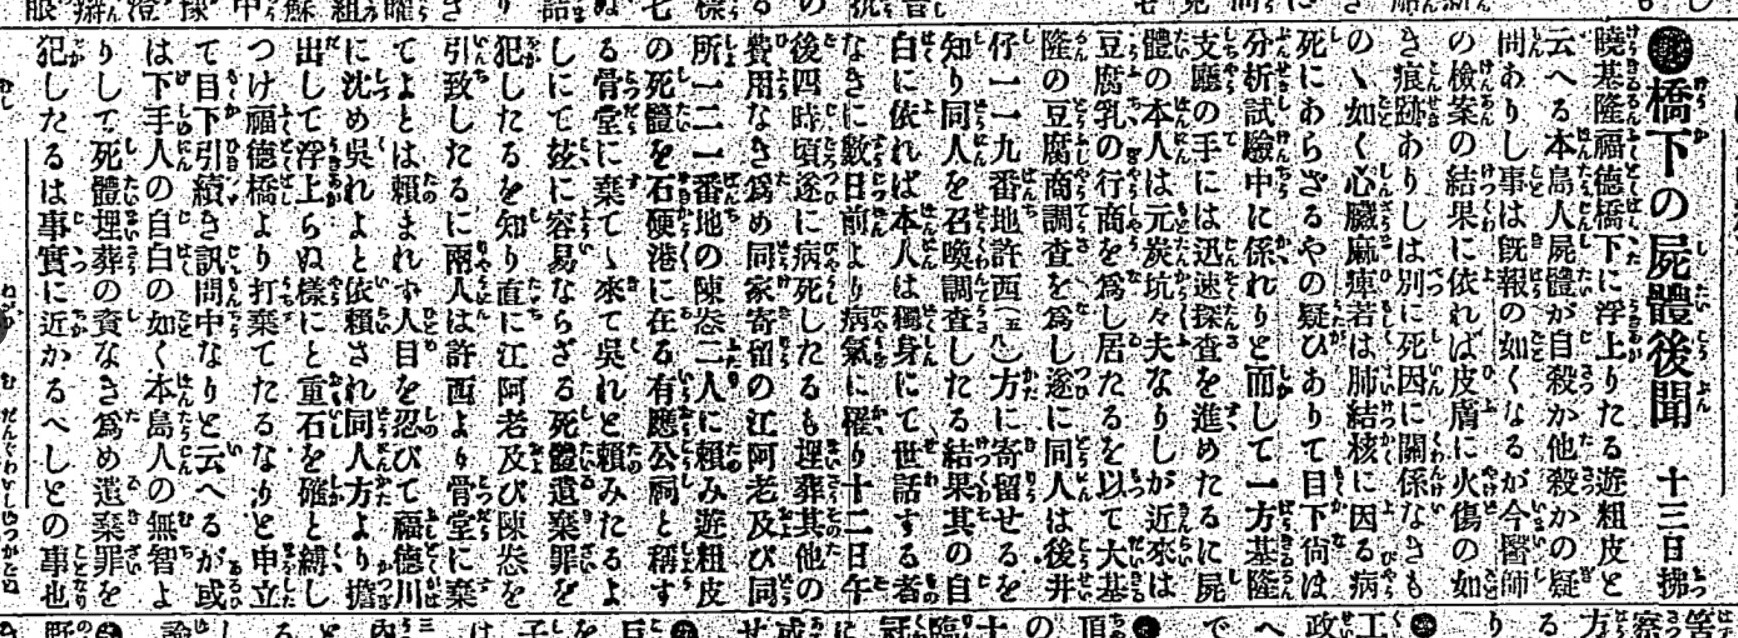 橋下の屍體後聞　十三日拂
曉基隆福德橋下に浮上りたる遊粗皮と
云へる本島人屍體が自殺か他殺かの疑
問ありし事は既報の如くなるが今醫師
の檢案の結果に依れば皮膚に火傷の如
き痕跡ありしは別に死因に關係なきも
のゝ如く心臟麻痺若は肺結核に因る病
死にあらざるやの疑ひありて目下尙は
分析試驗中に係れりと而して一方基隆
支廳の手には迅速探査を進めたるに屍
體の本人は元炭坑々夫なりしが近來は
豆腐乳の行商を爲し居たるを以て大基
隆の豆腐商調査を爲し遂に同人は後井
仔一一九番地許西（五八）方に寄留せるを
知り同人を召喚調査したる結果其の自
白に依れば本人は獨身にて世話する者
なきに數日前より病氣に罹り十二日午
後四時頃遂に病死したるも埋葬其他の
費用なき爲め同家寄留の江阿老及び同
所一二一番地の陳忩二人に賴み遊粗皮
の死體を石硬港に在る有應公祠と稱す
る骨堂に棄てゝ來て吳れと賴みたるよ
しにて玆に容易ならざる死體遺棄罪を
犯したるを知り直に江阿老及び陳忩を
引致したるに兩人は許西より骨堂に棄
てよとは賴まれず人目を忍びて福德川
に沈め吳れよと依賴され同人方より擔
出して浮上らぬ樣にと重石を確と縛し
つけ福德橋より打棄てたるなりと申立
て目下引續き訊問中なりと云へるが或
は下手人の自白の如く本島人の無智よ
りして死體埋葬の資なき爲め遺棄罪を
犯したるは事實に近かるべしとの事也